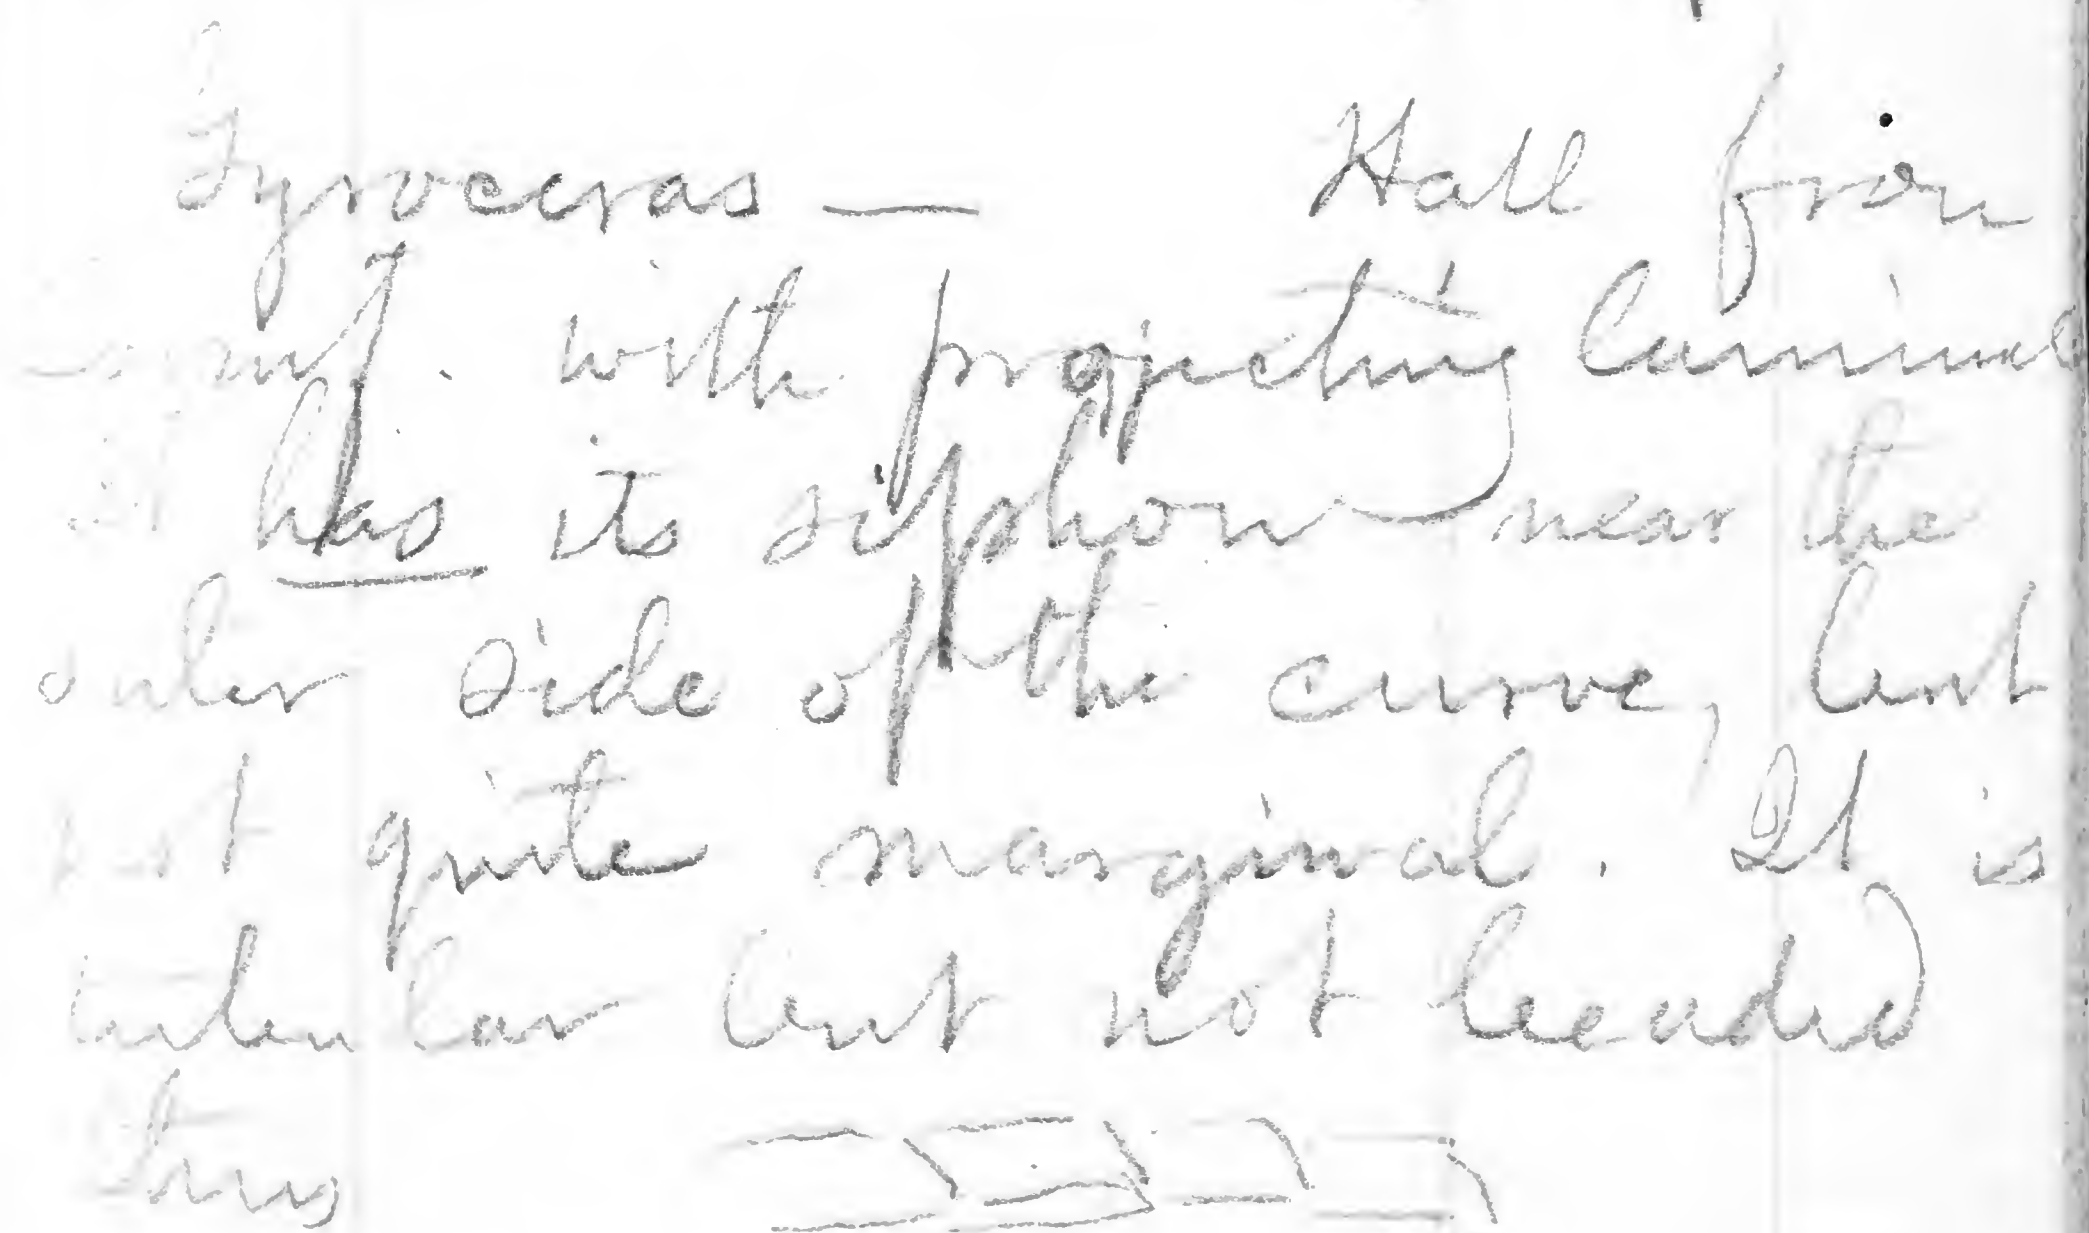 Gyroceras — Hall from
with projecting laminae
has its siphon near the
outer side of the curve, but
not quite marginal. It is
tubular but not beaded
thus